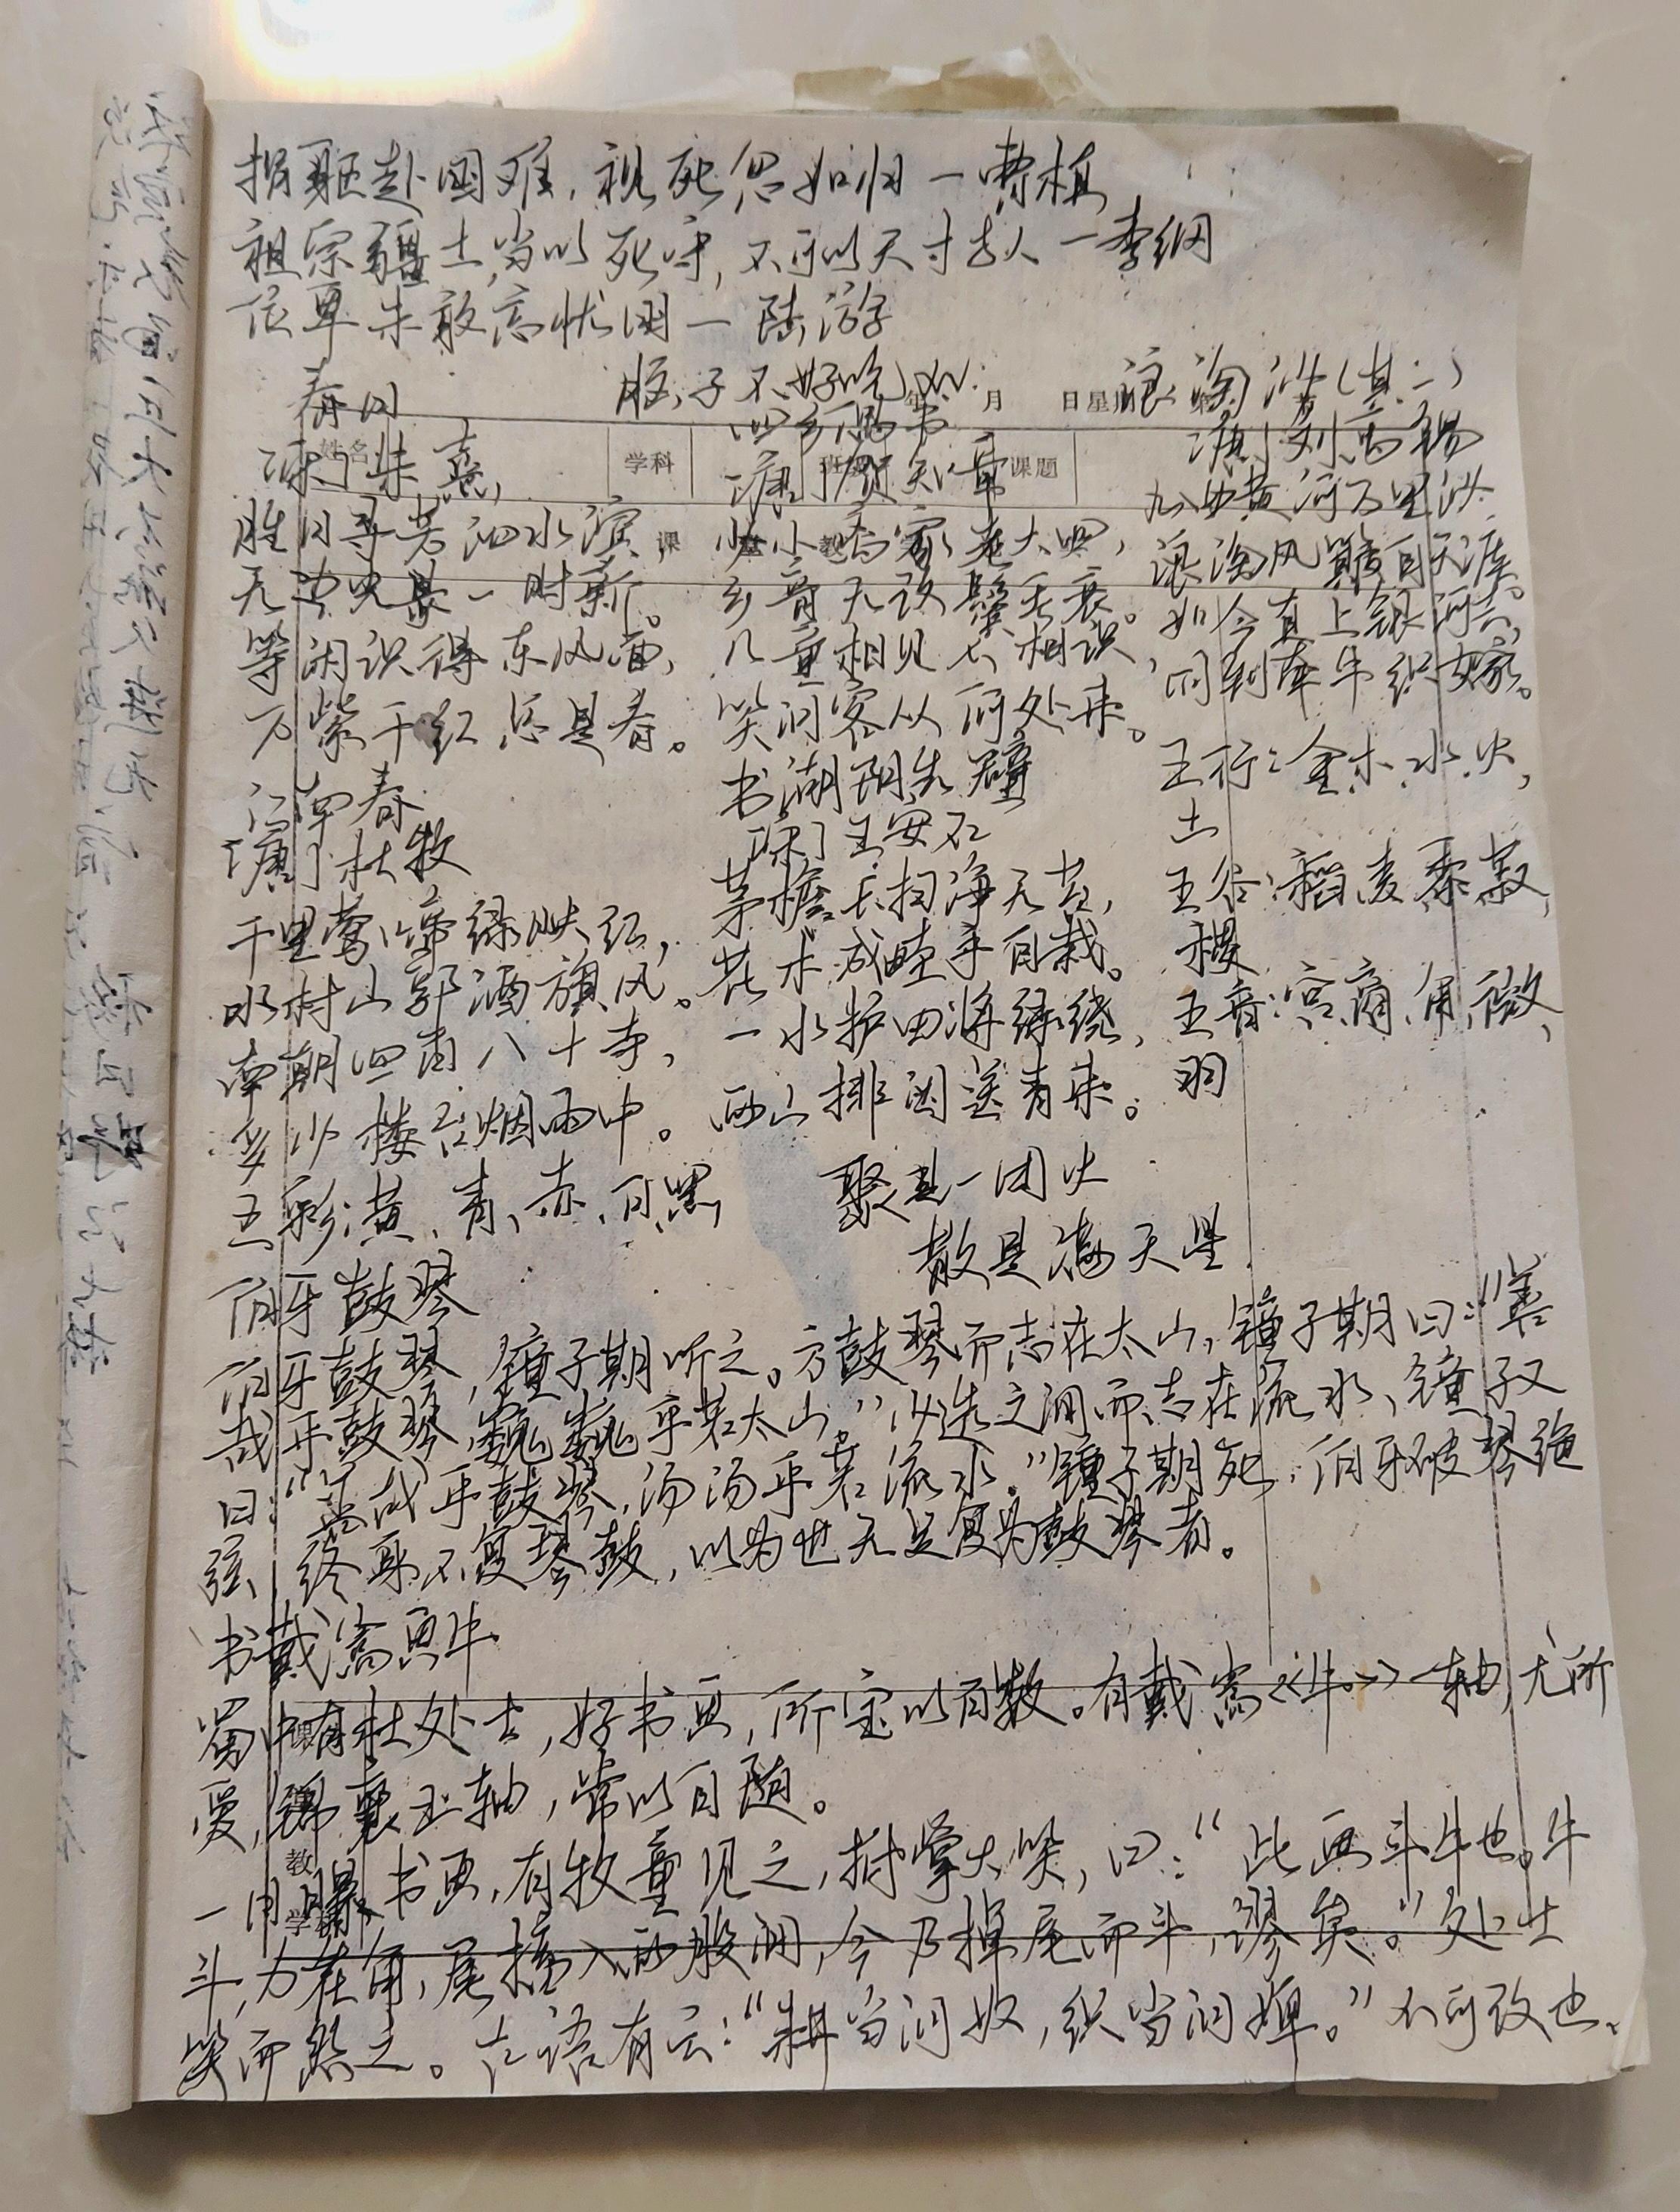 捐躯赴国难，视死忽如归一曹植
祖宗疆土，当以死守，不可以尺寸与人一李纲
位卑未敢忘忧国一陆游
春日
[宋]朱熹
胜日寻芳泗水滨，
无边光景一时新。
等闲识得东风面，
万紫千红总是春。
江南春
[唐]杜牧
千里莺啼绿映红，
水村山郭酒旗风。
南朝四百八十寺，
多少楼台烟雨中。
五彩：黄、青、赤、白、黑
子不好吃
回乡偶书
[唐]贺知章
少小离家老大回，
乡音无改鬓毛衰。
儿童相见不相识，
笑问客从何处来。
书湖阴先壁
[宋]王安石
茅檐长扫净无苔，
花木成畦手自栽。
一水护田将绿绕，
两山排闼送青来。
浪淘沙(其一)
[唐]刘禹锡
九曲黄河万里沙
浪淘风簸自天涯。
如今直上银河去，
同到牵牛织女家。
五行：金、木、水、火，
土
五谷：稻、麦、黍、菽、
稷
五音：宫、商、角、徵、
羽
聚是一团火
散是满天星
年 月 日星期
姓名 学科 班级 课题
课 教
伯牙鼓琴
伯牙鼓琴，锺子期听之。方鼓琴而志在太山，锺子期曰：“善
哉乎鼓琴，巍巍乎若太山。”少选之间而志在流水、锺子又
曰：“善哉乎鼓琴，汤汤乎若流水。”锺子期死，伯牙破琴绝
弦，终身不复琴鼓，以为世无足复为鼓琴者。
书戴嵩画牛
蜀中有杜处士，好书画，所宝以百数。有戴嵩《牛》一轴，尤所
爱，锦囊玉轴，常以自随。
一日曝书画，有牧童见之，拊掌大笑，曰：“此画斗牛也。牛
斗，力在角，尾搐入两股间，今乃掉尾而斗，谬矣。”处士
笑而然之。古语有云：“耕当问奴，织当问婢。”不可改也。